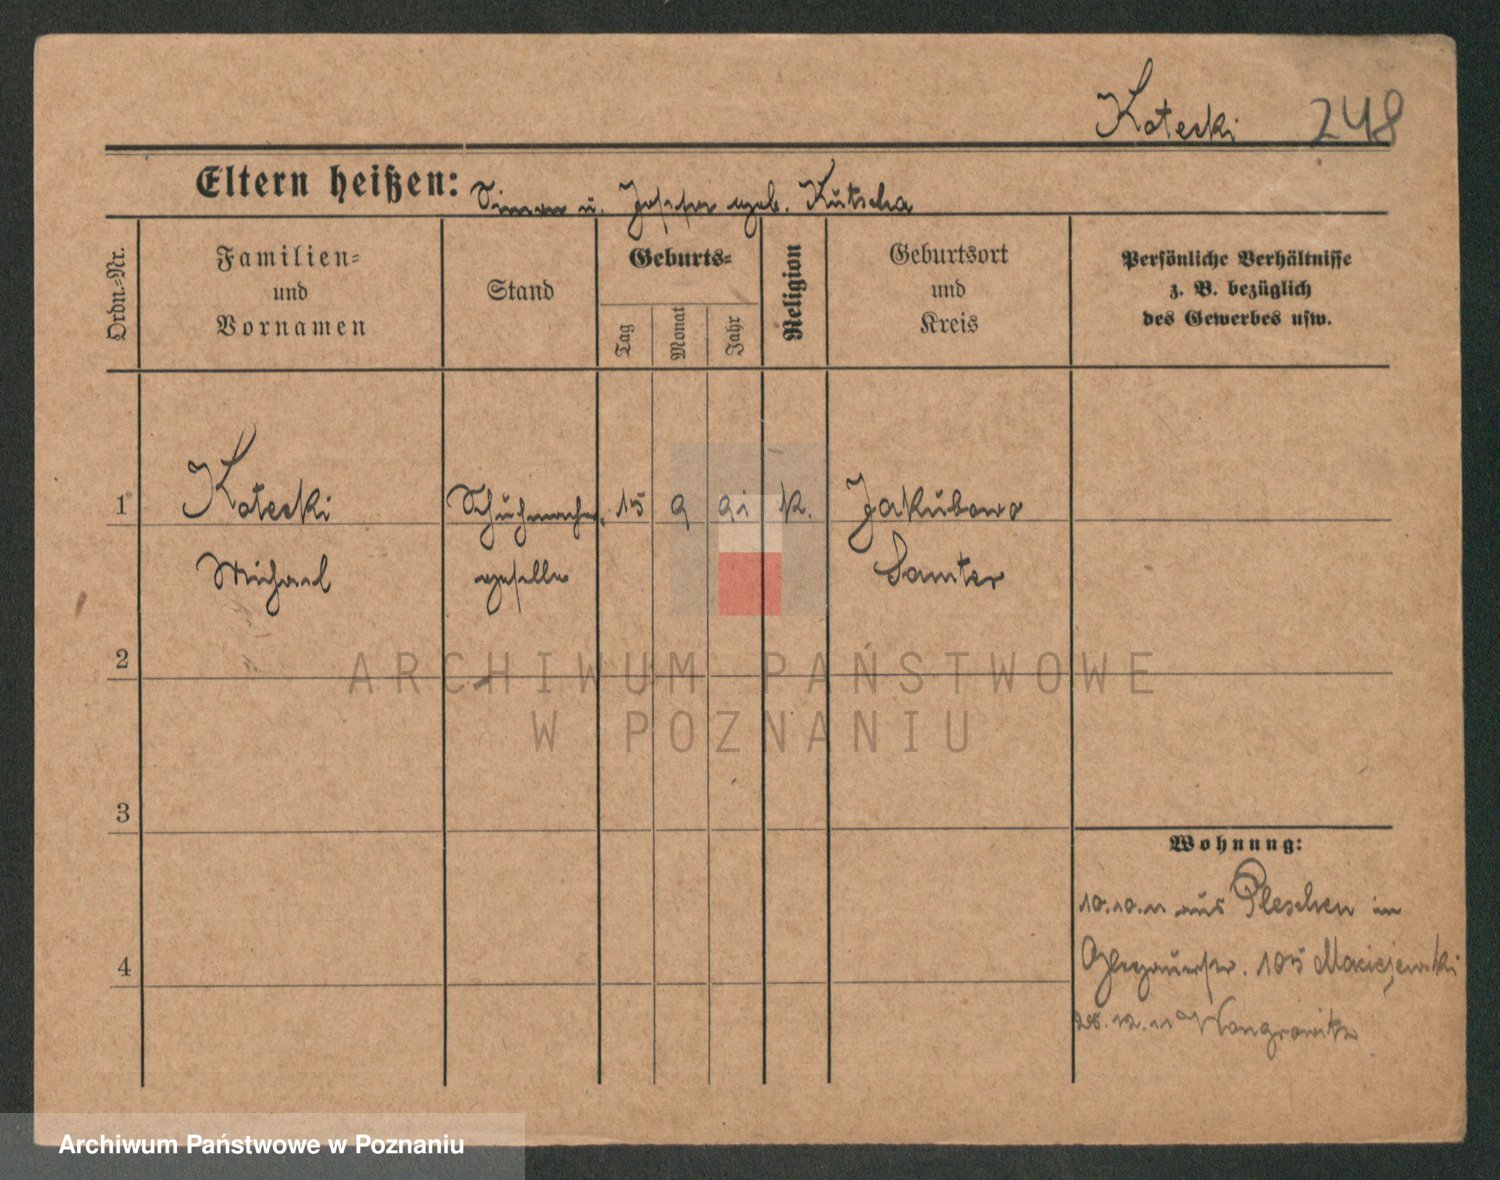 Kotecki 248
Eltern heißen: Simon u. Josefa geb. Kutscha
Ordn.=Nr.
Familien=
und
Vornamen
Stand
Geburts=
Tag
Monat
Jahr
Religion
Geburtsort
und
Kreis
Persönliche Verhältnisse
z. B. bezüglich
des Gewerbes usw.
1 Kotecki Schuhmacher 15 9 91 k. Jakubowo
Michael geselle Samter
2
ARCHIWUM PAŃSTWOWE
W POZNANIU
3
Wohnung:
10.10.11 aus Pleschen in
105 Maciejewski
4
28.12.11 Wongrowitz
Archiwum Państwowe w Poznaniu